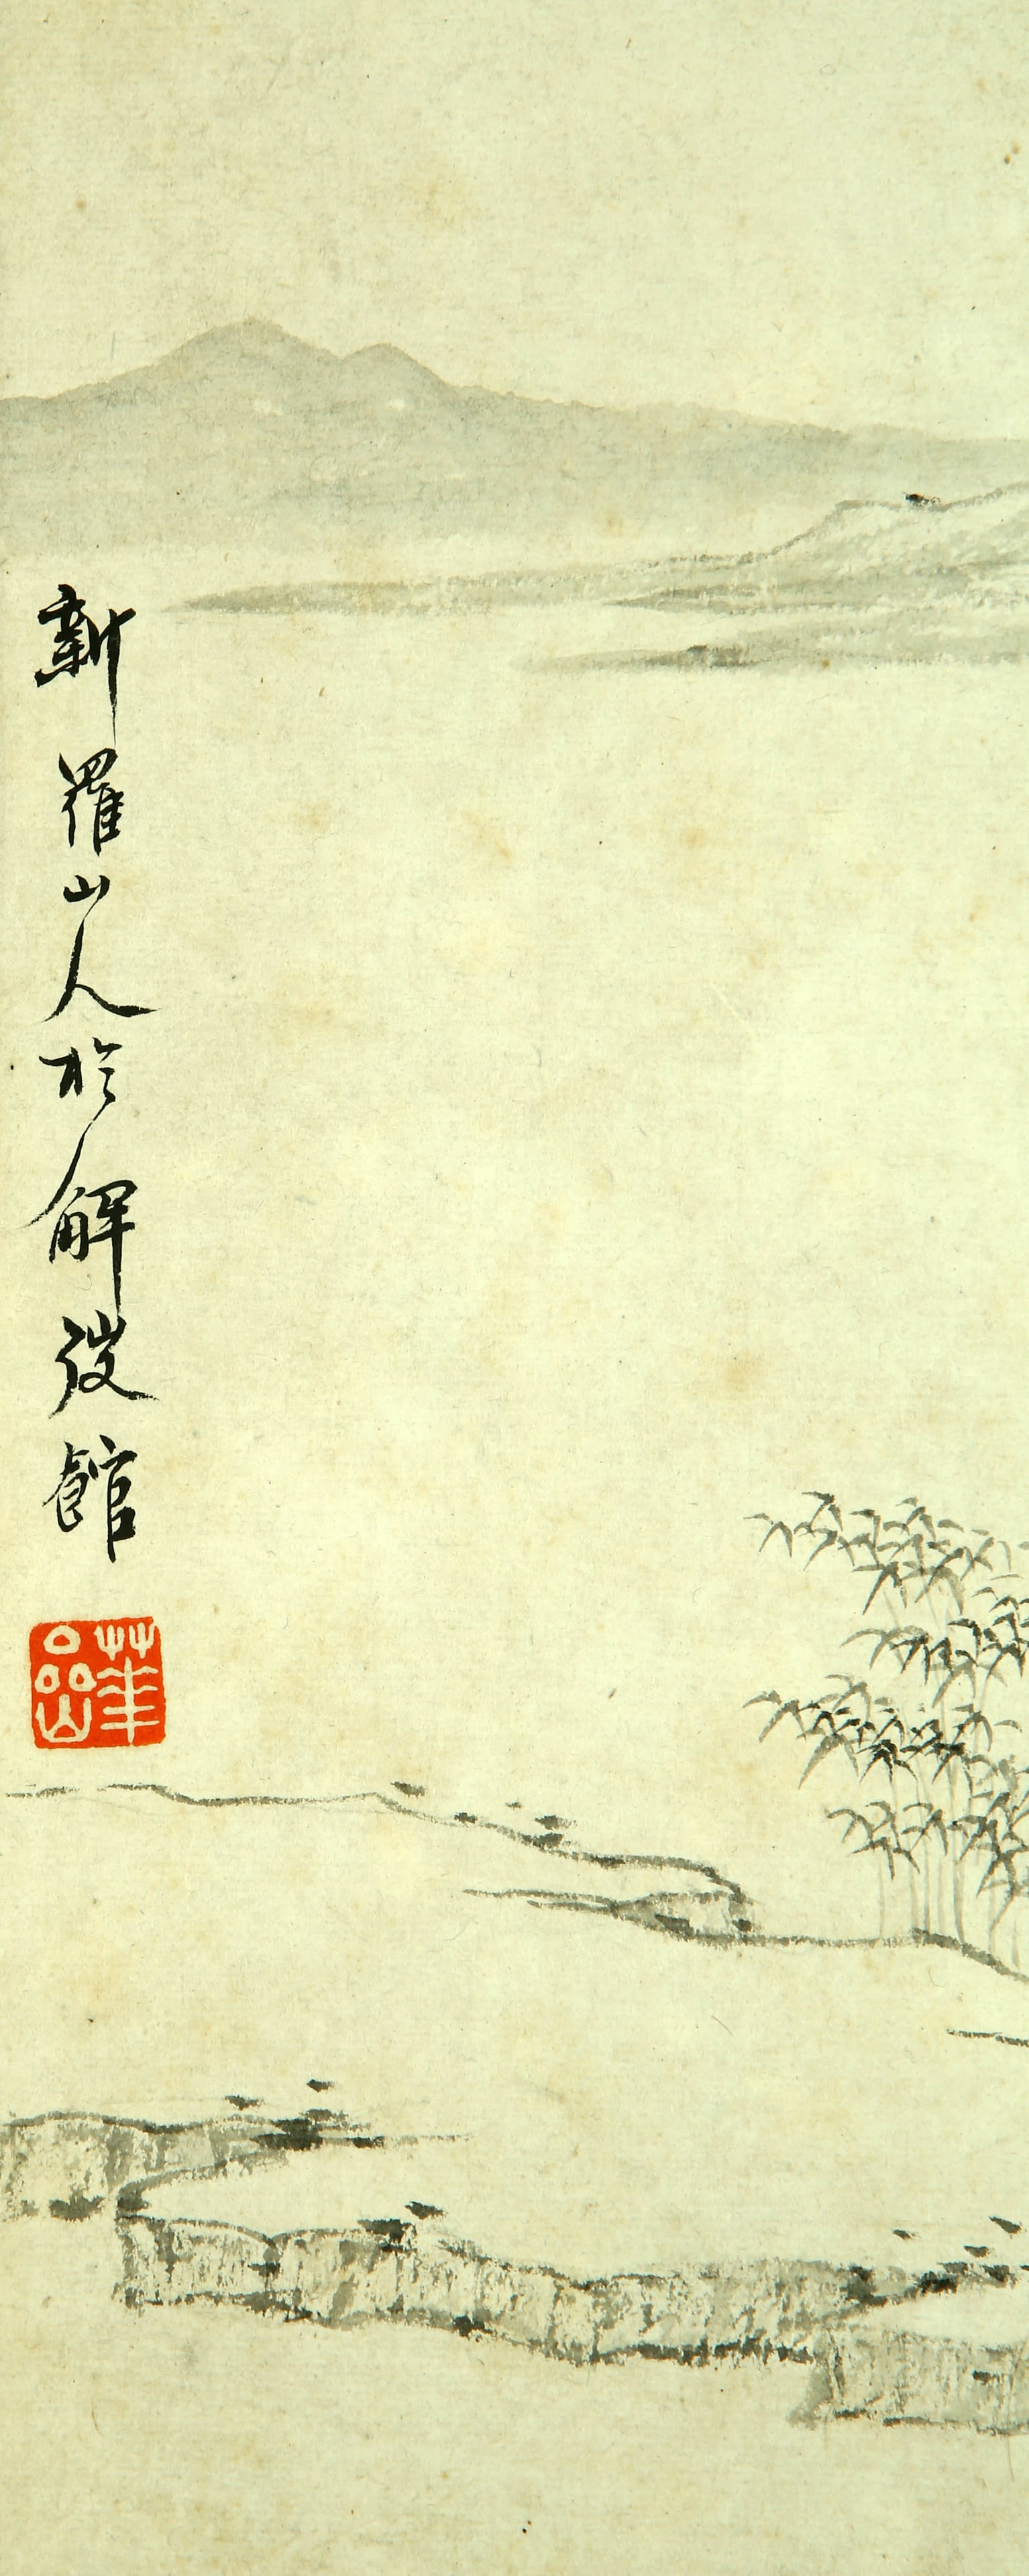 新羅山人於解弢館
華嵒